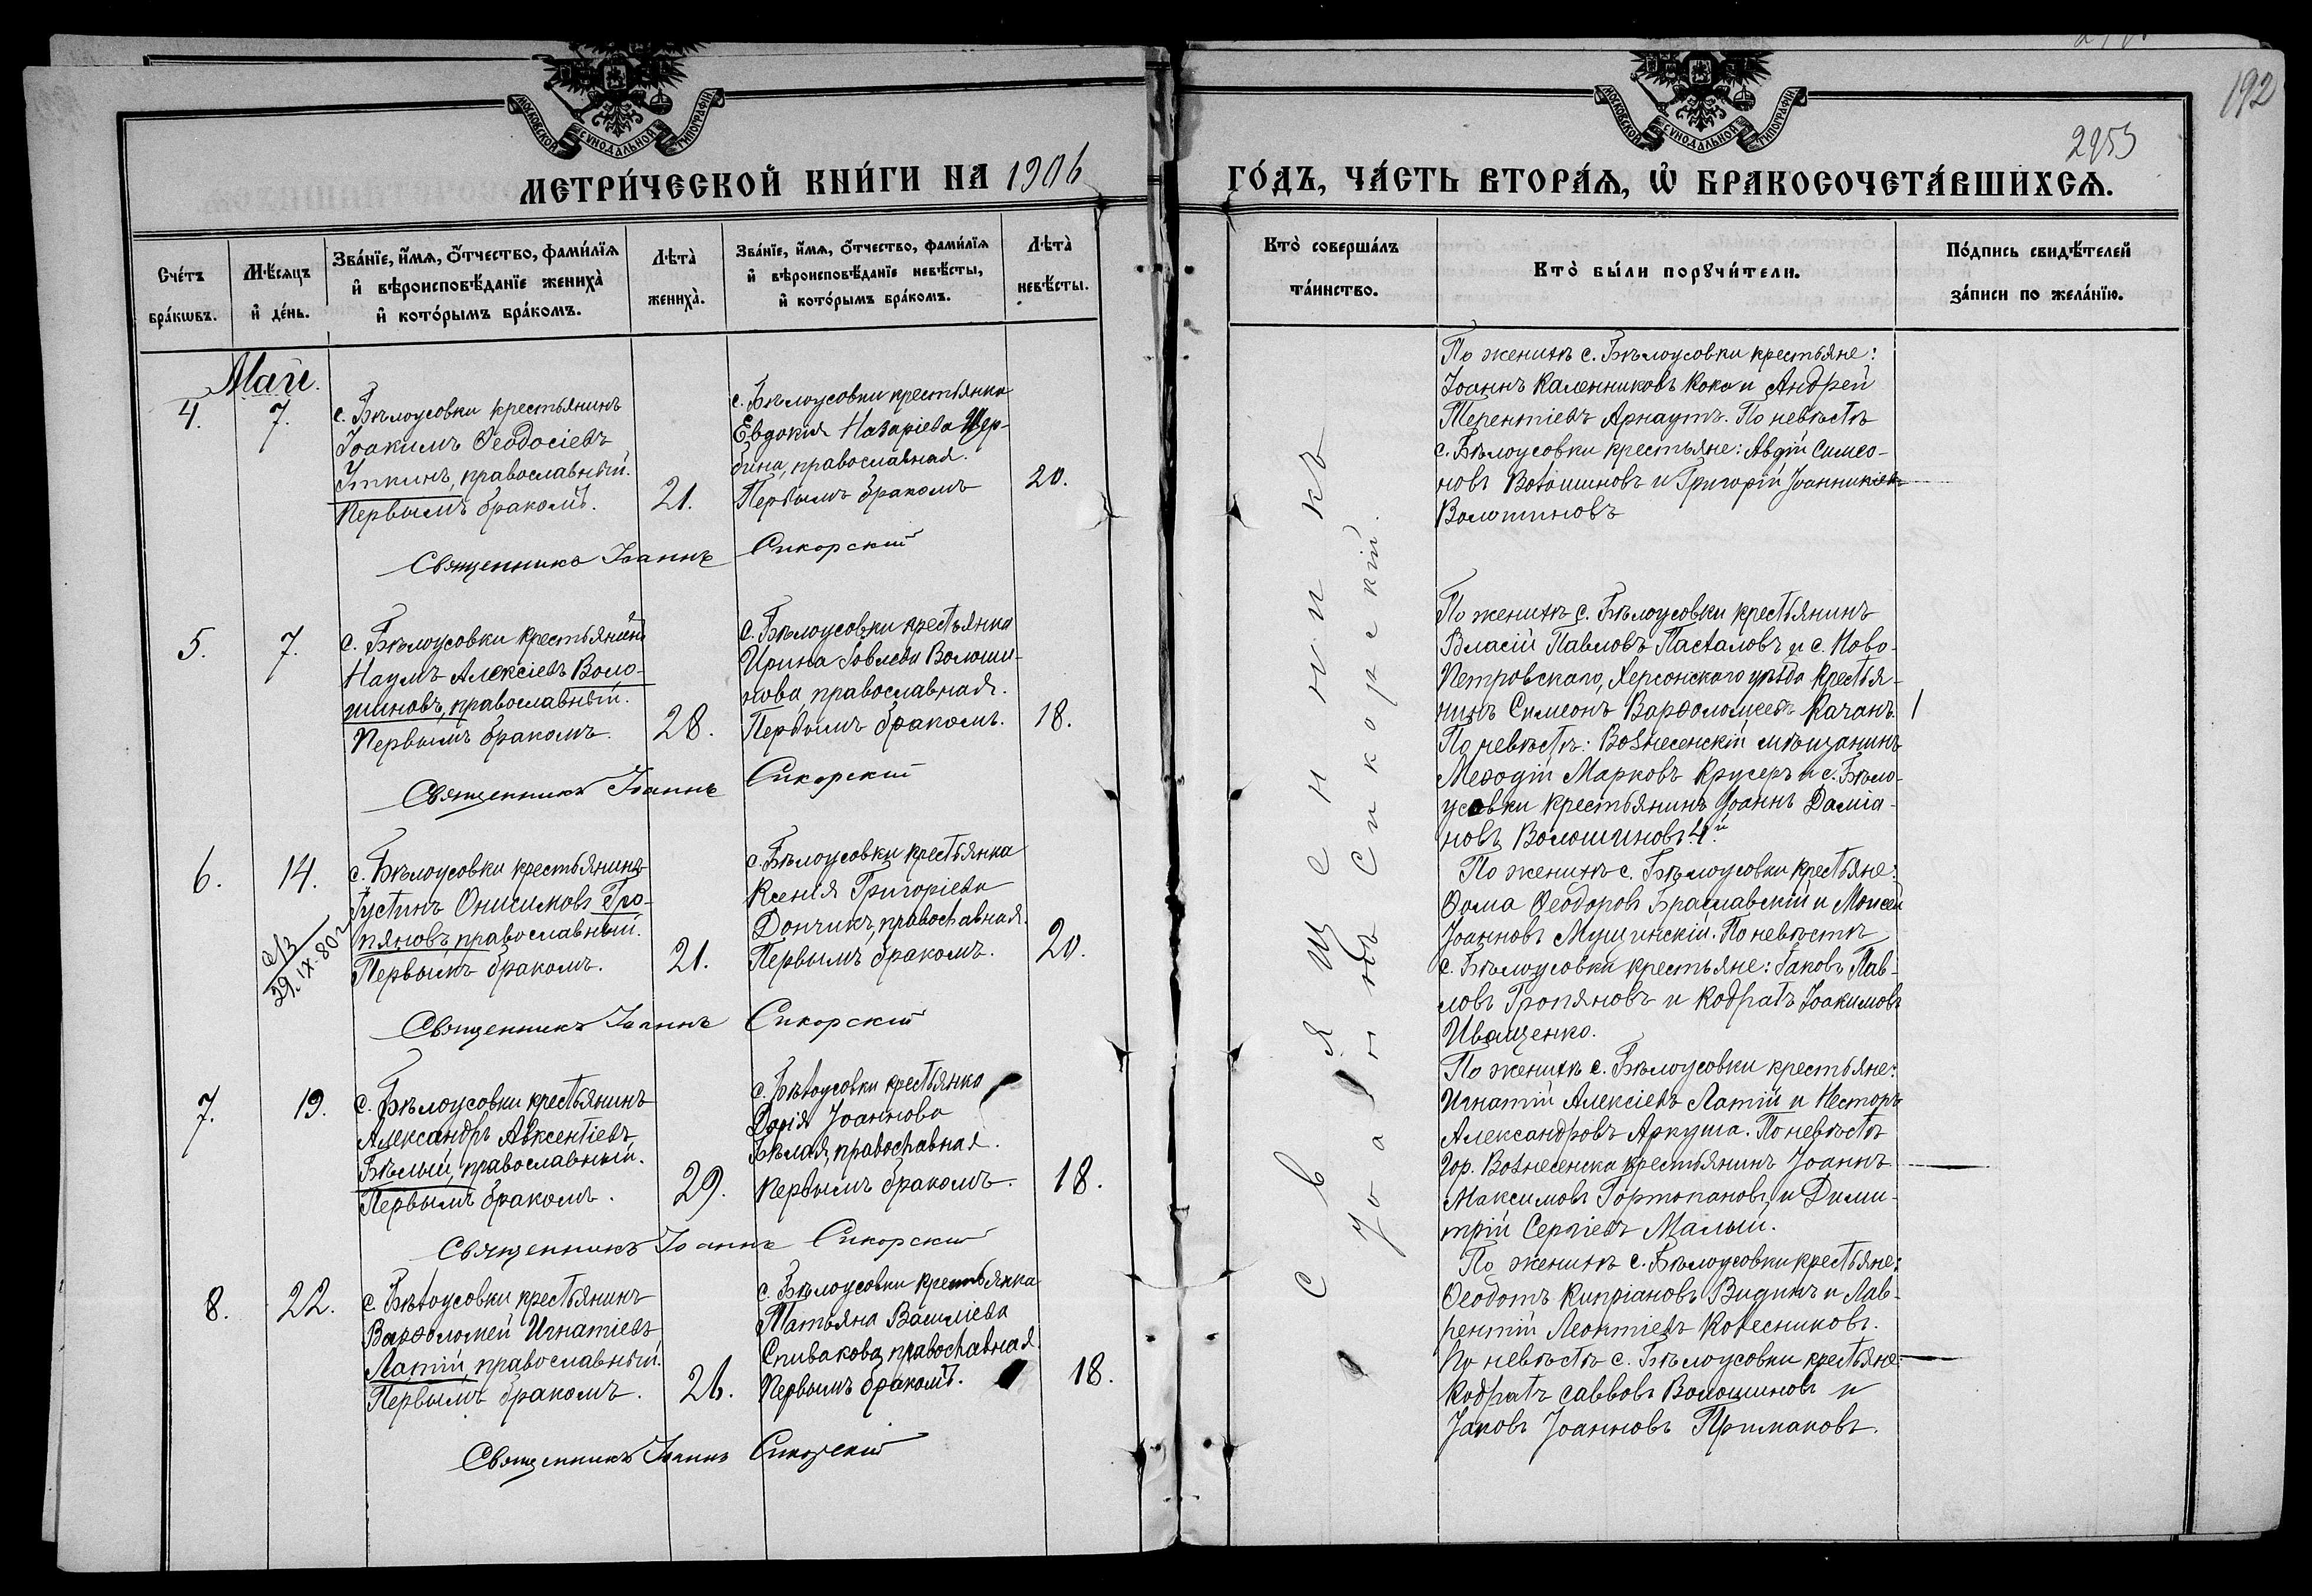 192
2953
МОСКОВСКОЙ СѴНОДАЛЬНОЙ ТИПОГРАФІИ
МОСКОВСКОЙ СѴНОДАЛЬНОЙ ТИПОГРАФІИ
МЕТРИ́ЧЕСКОЙ КНИ́ГИ НА 1906
ГО́ДЪ, ЧА́СТЬ ВТОРА́Ѧ, Ѡ҆ БРАКОСОЧЕТА́ВШИХСѦ.
Сче́тъ
бра́кѡвъ.
Мѣ́сѧцъ
и҆ де́нь.
Зва́нїе, и҆́мѧ, ѻ҆́тчество, фами́лїѧ
и҆ вѣроисповѣ́данїе жениха̀
и҆ кото́рымъ бра́комъ.
Лѣта̀
жениха̀.
Зва́нїе, и҆́мѧ, ѻ҆́тчество, фами́лїѧ
и҆ вѣроисповѣ́данїе невѣ́сты,
и҆ кото́рымъ бра́комъ.
Лѣта̀
невѣ́сты.
Кто̀ соверша́лъ
та́инство.
Кто̀ бы́ли порꙋчи́тели.
По́дпись свидѣ́телей
за́писи по жела́нїю.
Май.
4.
7.
с. Бѣлоусовки крестьянинъ
Іоакимъ Ѳеодосіевъ
Уткинъ, православный.
Первымъ бракомъ.
21.
с. Бѣлоусовки крестьянка
Евдокія Назаріева Щер-
бина, православная.
Первымъ бракомъ
20.
Священникъ Іоаннъ Сикорскій
По женихѣ с. Бѣлоусовки крестьяне:
Іоаннъ Каленниковъ Кока и Андрей
Терентіевъ Арнаутъ. По невѣстѣ
с. Бѣлоусовки крестьяне: Авдій Симео-
новъ Волошиновъ и Григорій Іоанникіевъ
Волошиновъ
5.
7.
с. Бѣлоусовки крестьянинъ
Наумъ Алексіевъ Воло-
шиновъ, православный.
Первымъ бракомъ.
28.
с. Бѣлоусовки крестьянка
Ирина Іовлева Волоши-
нова, православная.
Первымъ бракомъ.
18.
Священникъ Іоаннъ Сикорскій
По женихѣ с. Бѣлоусовки крестьянинъ
Власій Павловъ Пасталовъ и с. Ново-
Петровскаго, Херсонскаго уѣзда крестья-
нинъ Симеонъ Варѳоломеевъ Качанъ.
По невѣстѣ: Вознесенскій мѣщанинъ
Меѳодій Марковъ Крусеръ и с. Бѣло-
усовки крестьянинъ Іоаннъ Даміа-
новъ Волошиновъ 4й.
6.
14.
с. Бѣлоусовки крестьянинъ
Іустинъ Онисимовъ Гро-
пяновъ, православный.
Первымъ бракомъ.
21.
29.IX.80г
с. Бѣлоусовки крестьянка
Ксенія Григоріева
Дончикъ, православная.
Первымъ бракомъ.
20.
Священникъ Іоаннъ Сикорскій
По женихѣ с. Бѣлоусовки крестьяне:
Ѳома Ѳеодоровъ Браславскій и Моисей
Іоанновъ Мущинскій. По невѣстѣ
с. Бѣлоусовки крестьяне: Іаковъ Пав-
ловъ Гропяновъ и Кодратъ Іоакимовъ
Иващенко.
7.
19.
с. Бѣлоусовки крестьянинъ
Александръ Авксентіевъ
Бѣлый, православный.
Первымъ бракомъ.
29.
с. Бѣлоусовки крестьянка
Дарія Іоаннова
Бѣлая, православная.
Первымъ бракомъ.
18.
Священникъ Іоаннъ Сикорскій
По женихѣ с. Бѣлоусовки крестьяне:
Игнатій Алексіевъ Латій и Несторъ
Александровъ Аркуша. По невѣстѣ
гор. Вознесенска крестьянинъ Іоаннъ
Максимовъ Гортопановъ и Дими-
трій Сергіевъ Малый.
8.
22.
с. Бѣлоусовки крестьянинъ
Варѳоломей Игнатіевъ
Латій, православный.
Первымъ бракомъ.
26.
с. Бѣлоусовки крестьянка
Татьяна Василіева
Спивакова, православная
Первымъ бракомъ.
18.
Священникъ Іоаннъ Сикорскій
По женихѣ с. Бѣлоусовки крестьяне:
Ѳеодотъ Кипріановъ Видинъ и Лав-
рентій Леонтіевъ Колесниковъ.
По невѣстѣ с. Бѣлоусовки крестьяне:
Кодратъ Саввовъ Волошиновъ и
Іаковъ Іоанновъ Примаковъ.
Священникъ
Іоаннъ Сикорскій.